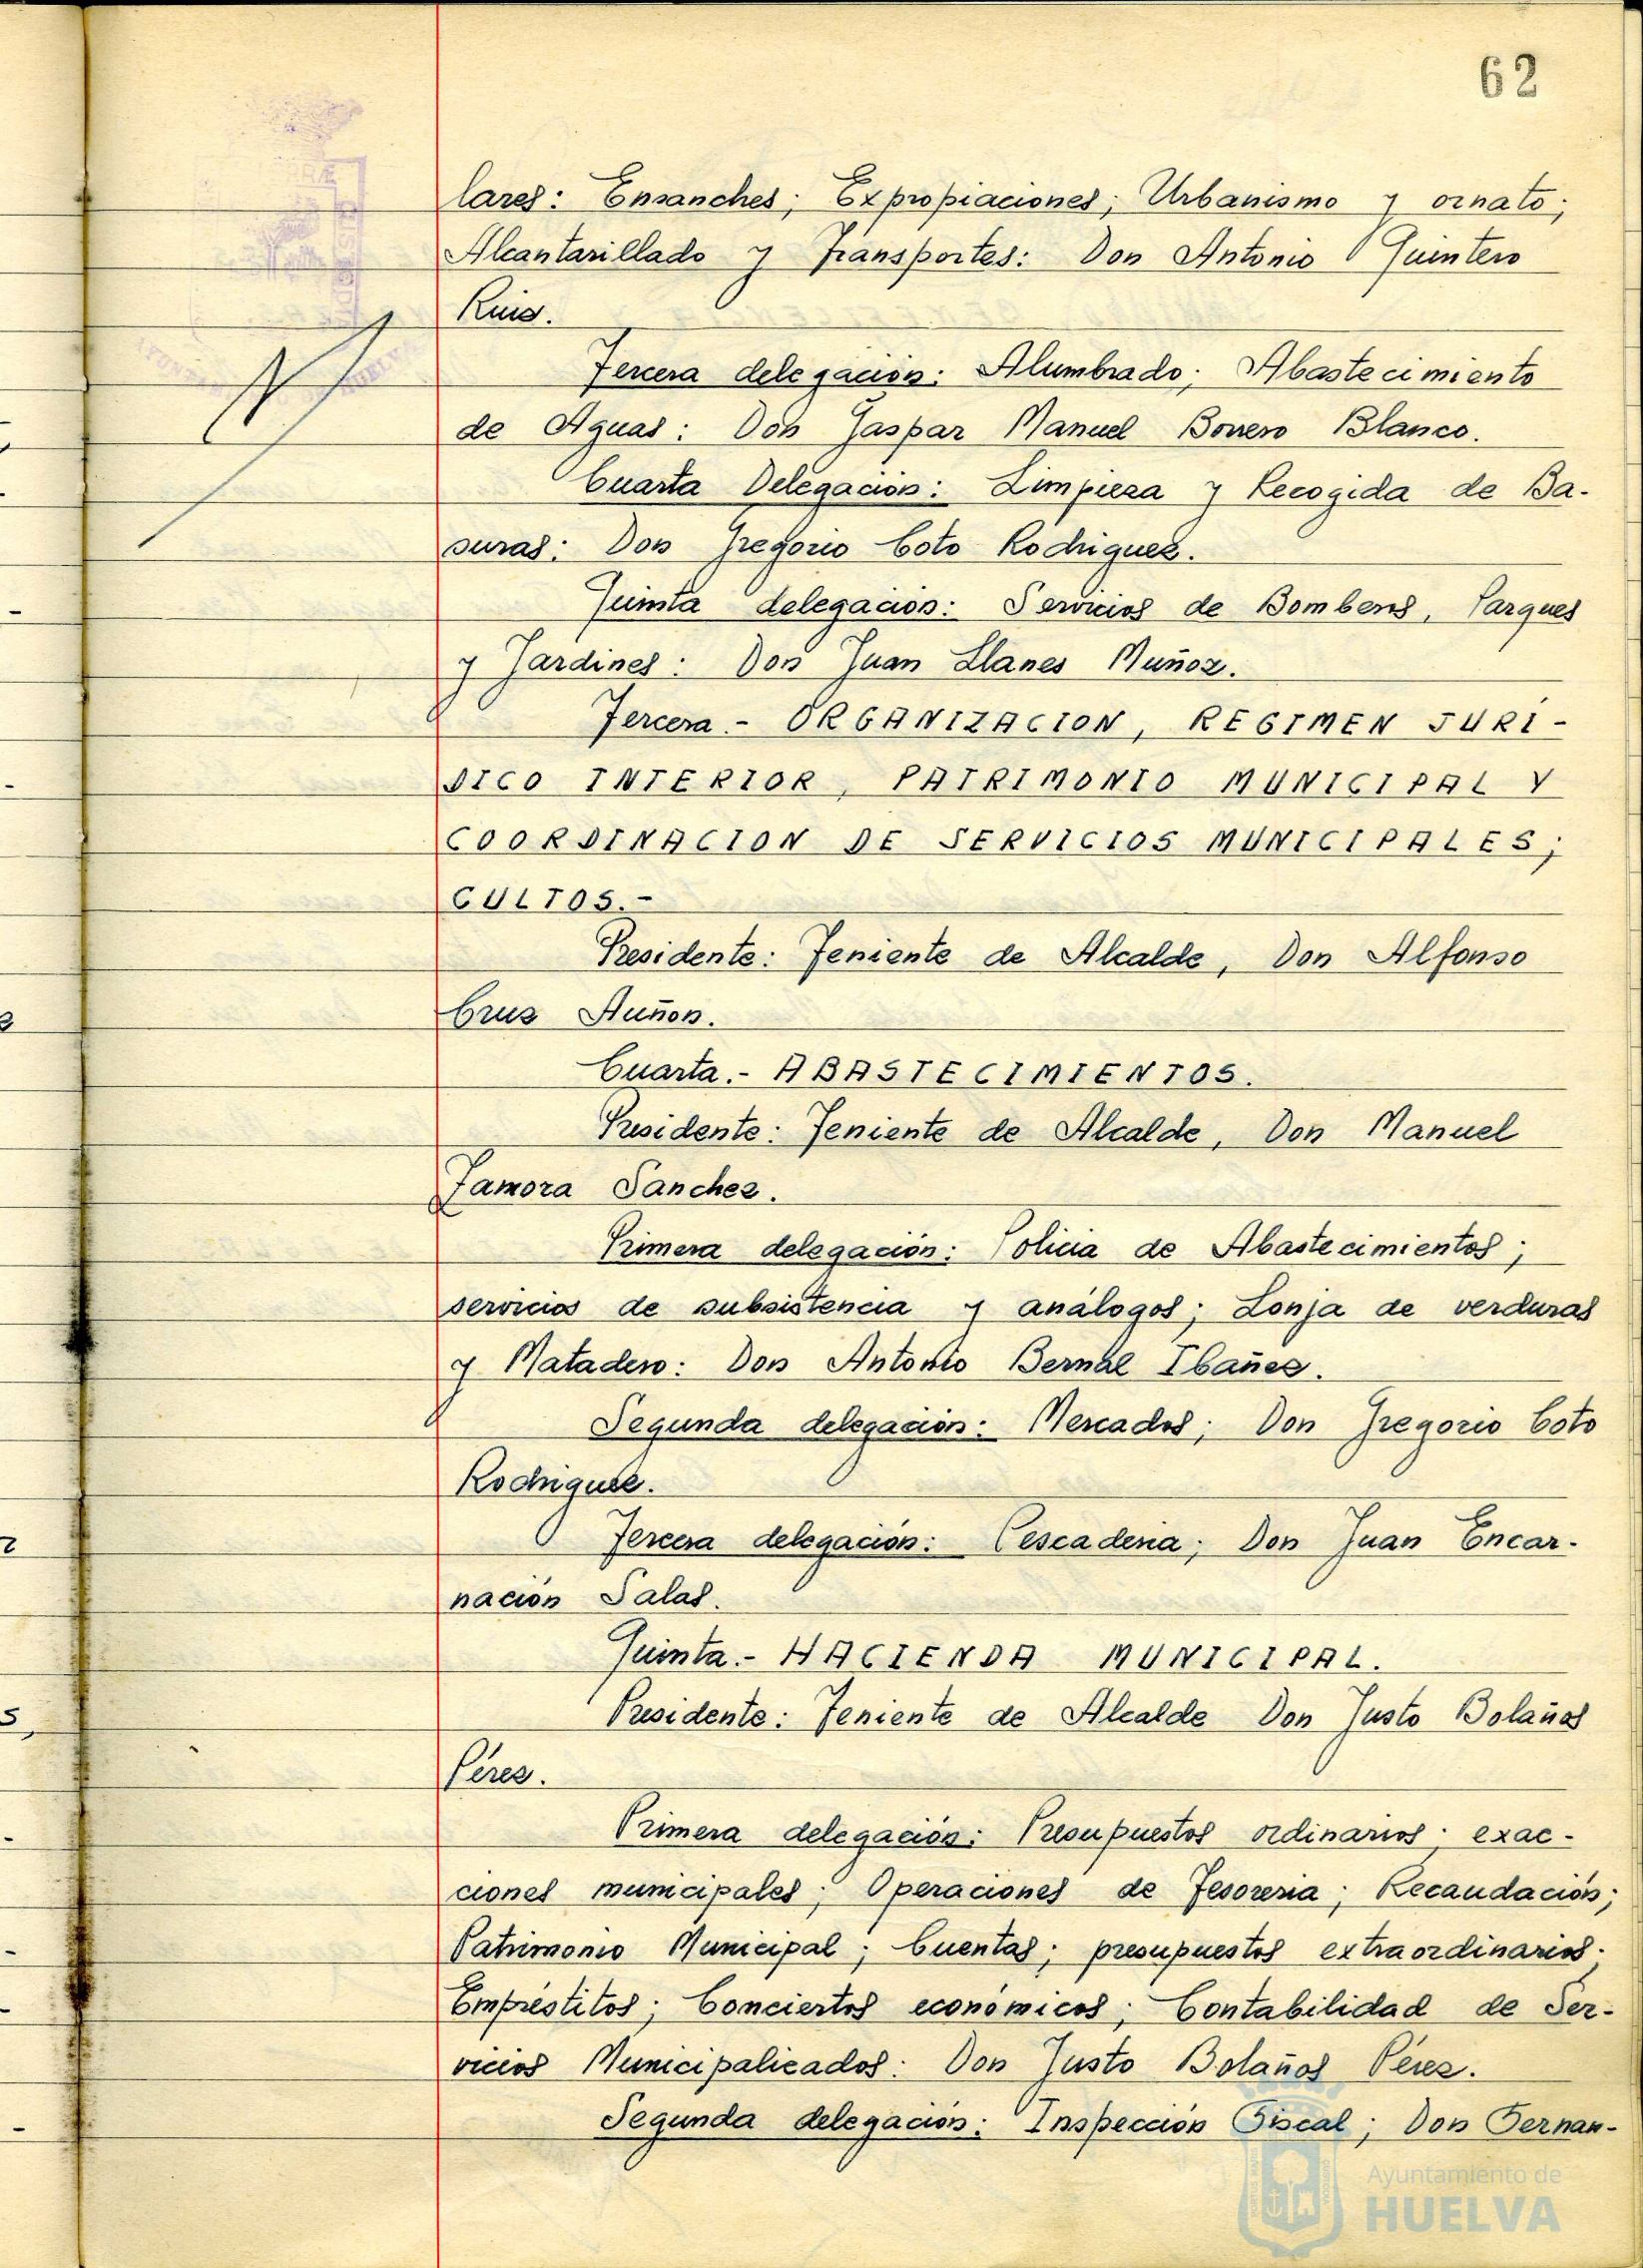 62
lares: Ensanches; Expropiaciones; Urbanismo y ornato;
Alcantarillado y Transportes: Don Antonio Quintero
Ruiz.
Tercera delegación: Alumbrado; Abastecimiento
de Aguas: Don Gaspar Manuel Borrero Blanco.
Cuarta Delegación: Limpieza y Recogida de Ba-
suras: Don Gregorio Coto Rodriguez.
Quinta delegación: Servicios de Bomberos, Parques
y Jardines: Don Juan Llanes Muñoz.
Tercera.- ORGANIZACION, REGIMEN JURI-
DICO INTERIOR, PATRIMONIO MUNICIPAL Y
COORDINACION DE SERVICIOS MUNICIPALES;
CULTOS.-
Presidente: Teniente de Alcalde, Don Alfonso
Cruz Auñon.
Cuarta.- ABASTECIMIENTOS.
Presidente: Teniente de Alcalde, Don Manuel
Zamora Sanchez.
Primera delegación: Policia de Abastecimientos;
servicios de subsistencia y análogos; Lonja de verduras
y Matadero: Don Antonio Bernal Ibañez.
Segunda delegación: Mercados; Don Gregorio Coto
Rodriguez.
Tercera delegación: Pescaderia; Don Juan Encar-
nación Salas.
Quinta.- HACIENDA MUNICIPAL.
Presidente: Teniente de Alcalde Don Justo Bolaños
Pérez.
Primera delegación: Presupuestos ordinarios; exac-
ciones municipales; Operaciones de Tesoreria; Recaudación;
Patrimonio Municipal; Cuentas; presupuestos extraordinarios;
Empréstitos; Conciertos económicos; Contabilidad de Ser-
vicios Municipalizados: Don Justo Bolaños Pérez.
Segunda delegación: Inspección Fiscal; Don Fernan-
Ayuntamiento de
HUELVA